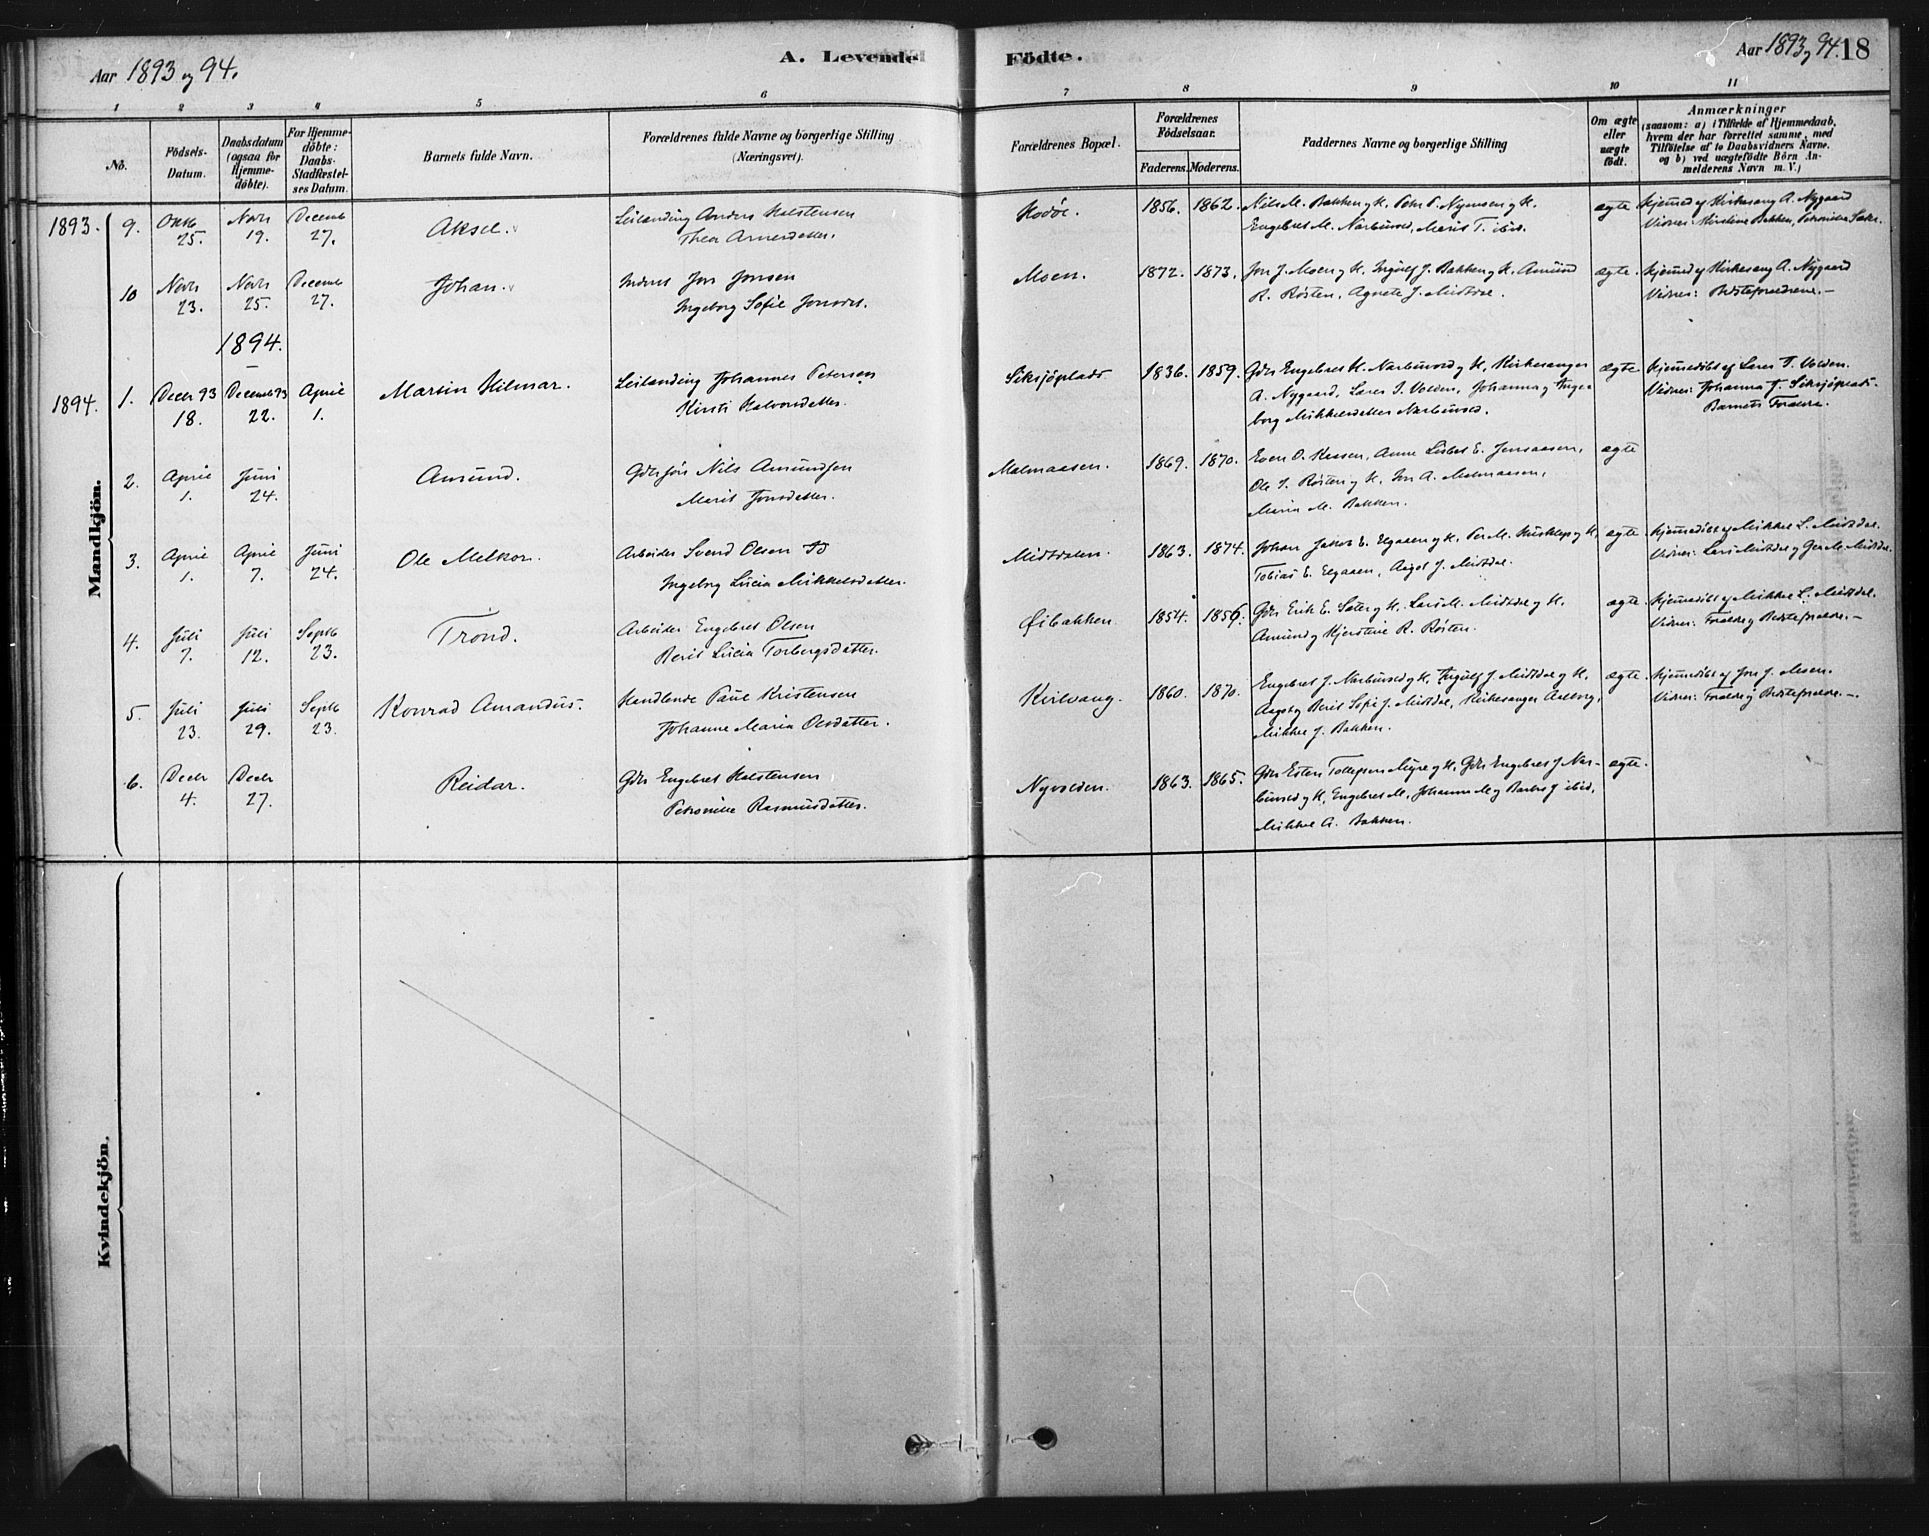 Aar 1893 og 94.
A. Levende Födte.
Aar 1893 og 94. 18
1 2 3 4 5 6 7 8 9 10 11
No.
Födsels-Datum.
Daabsdatum (ogsaa for Hjemme-döbte).
For Hjemme-döbte: Daabs-Stadfæstel-ses Datum.
Barnets fulde Navn.
Forældrenes fulde Navne og borgerlige Stilling (Næringsvei).
Forældrenes Bopæl.
Forældrenes Födselsaar.
Faderens. Moderens.
Faddernes Navne og borgerlige Stilling
Om ægte eller uægte födt.
Anmærkninger
(saasom: a) i Tilfælde af Hjemmedaab, hvem der har forrettet samme, med Tilföielse af to Daabsvidners Navne, og b) ved uægtefödte Börn An-melderens Navn m. V.)
Mandkjön.
1893. 9. Oktb 25. Novb 19. Decemb 27. Aksel. Leilending Anders Halstensen
Thea Arnesdatter. Kodöl. 1856. 1862. Nils M. Bakken og K. Peter P. Nymoen og K.
Engebret M. Narbuvold, Marit T. ibid. ægte Hjemmed. af Kirkesang. A. Nygaard
Vidner: Kirstine Bakken, Petronille Sæter.
10 Novb 23. Novb 25. Decemb 27. Johan. Inderst Jon Jonsen
Ingeborg Sofie Jonsdt. Moen. 1872. 1873. Jon J. Moen og K. Ingulf J. Bakken og K. Amund
R. Røsten, Agnete J. Midtdal. ægte. Hjemmed. af Kirkesang A. Nygaard
Vidner: Bedsteforældrene.
1894.
1894. 1. Decbr 93 18. Decemb 93 22. April 1. Martin Hilmar. Leilending Johannes Petersen
Kirsti Halvorsdatter. Siksjöplads 1836. 1859. Gdr Engebret K. Narbuvold og K, Kirkesanger
A. Nygaard, Lars T. Volden, Johanna og Inge-
borg Mikkelsdatter Narbuvold. ægte Hjemmedöbt af Lars T. Volden.
Vidner: Johanna J. Siksjöplads.
Barnets Forældre.
2. April 1. Juni 24. Amund. Gdrsön Nils Amundsen
Marit Jonsdatter. Malmaasen. 1869. 1870. Even O. Kaasen, Anne Lisbet E. Jensaasen,
Ole J. Røsten og K, Jon A. Malmaasen,
Maria M. Bakken. ægte
3. April 1. April 7. Juni 24. Ole Melkor. Arbeider Svend Olsen
Ingeborg Lucia Mikkelsdatter. Midtdalen. 1863. 1874. Johan Jakob E. Elgaaen og K, Per M. Kuskleps og K,
Tobias E. Elgaaen, Aagot J. Midtdal. ægte. Hjemmedöbt af Mikkel L. Midtdal.
Vidner: Lars Midtdal og M. Midtdal.
4. Juli 7. Juli 12. Septb 23. Trond. Arbeider Engebret Olsen
Berit Lucia Torbergsdatter. Öibakken. 1854. 1856. Gdr Erik E. Sæter og K. Lars M. Midtdal og K.
Amund og Kjerstine R. Røsten. ægte Hjemmedöbt af Mikkel L. Midtdal.
Vidner: Forældre og Bedsteforældre.
5. Juli 23. Juli 29. Septb 23. Konrad Amandus. Handlende Paul Kristensen
Johanne Maria Olsdatter. Kvilvang. 1860. 1870. Engebret J. Narbuvold og K, Ingulf J. Midtdal og K,
Aagot og Berit Sofie J. Midtdal, Kirkesanger Aalborg,
Mikkel J. Bakken. ægte. Hjemmedöbt af Jon J. Moen.
Vidner: Forældre og Bedsteforældre.
6. Decbr 4. Decbr 27. Reidar. Gdr Engebret Halstensen
Petronille Rasmusdatter. Nyvolden. 1863. 1865. Gdr Esten Tollefsen Myre og K, Gdr Engebret J. Nar-
buvold og K, Engebret M, Johanna M og Barbro J ibid,
Mikkel A. Bakken. ægte.
Kvindekjön.